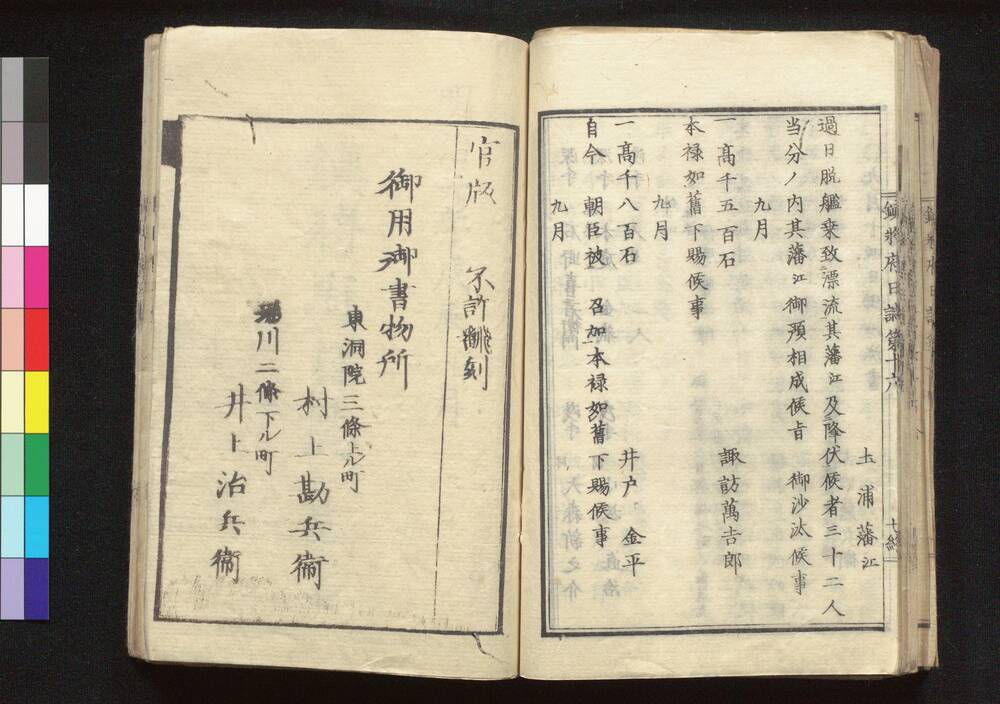 土浦藩江
過日脱艦乗致漂流其藩江及降伏候者三十二人
当分ノ内其藩江御預相成候旨 御沙汰候事
九月
一高千五百石 諏訪萬吉郎
本禄如舊下賜候事
九月
一高千八百石 井戸 金平
自今 朝臣被 召加本禄如舊下賜候事
九月
鎮将府日誌第十六 七終
官版 不許翻刻
御用御書物所
東洞院三條上ル町
村上勘兵衞
堀川二條下ル町
井上治兵衞